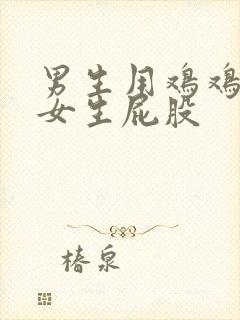 男生用鸡鸡
女生屁股
椿泉